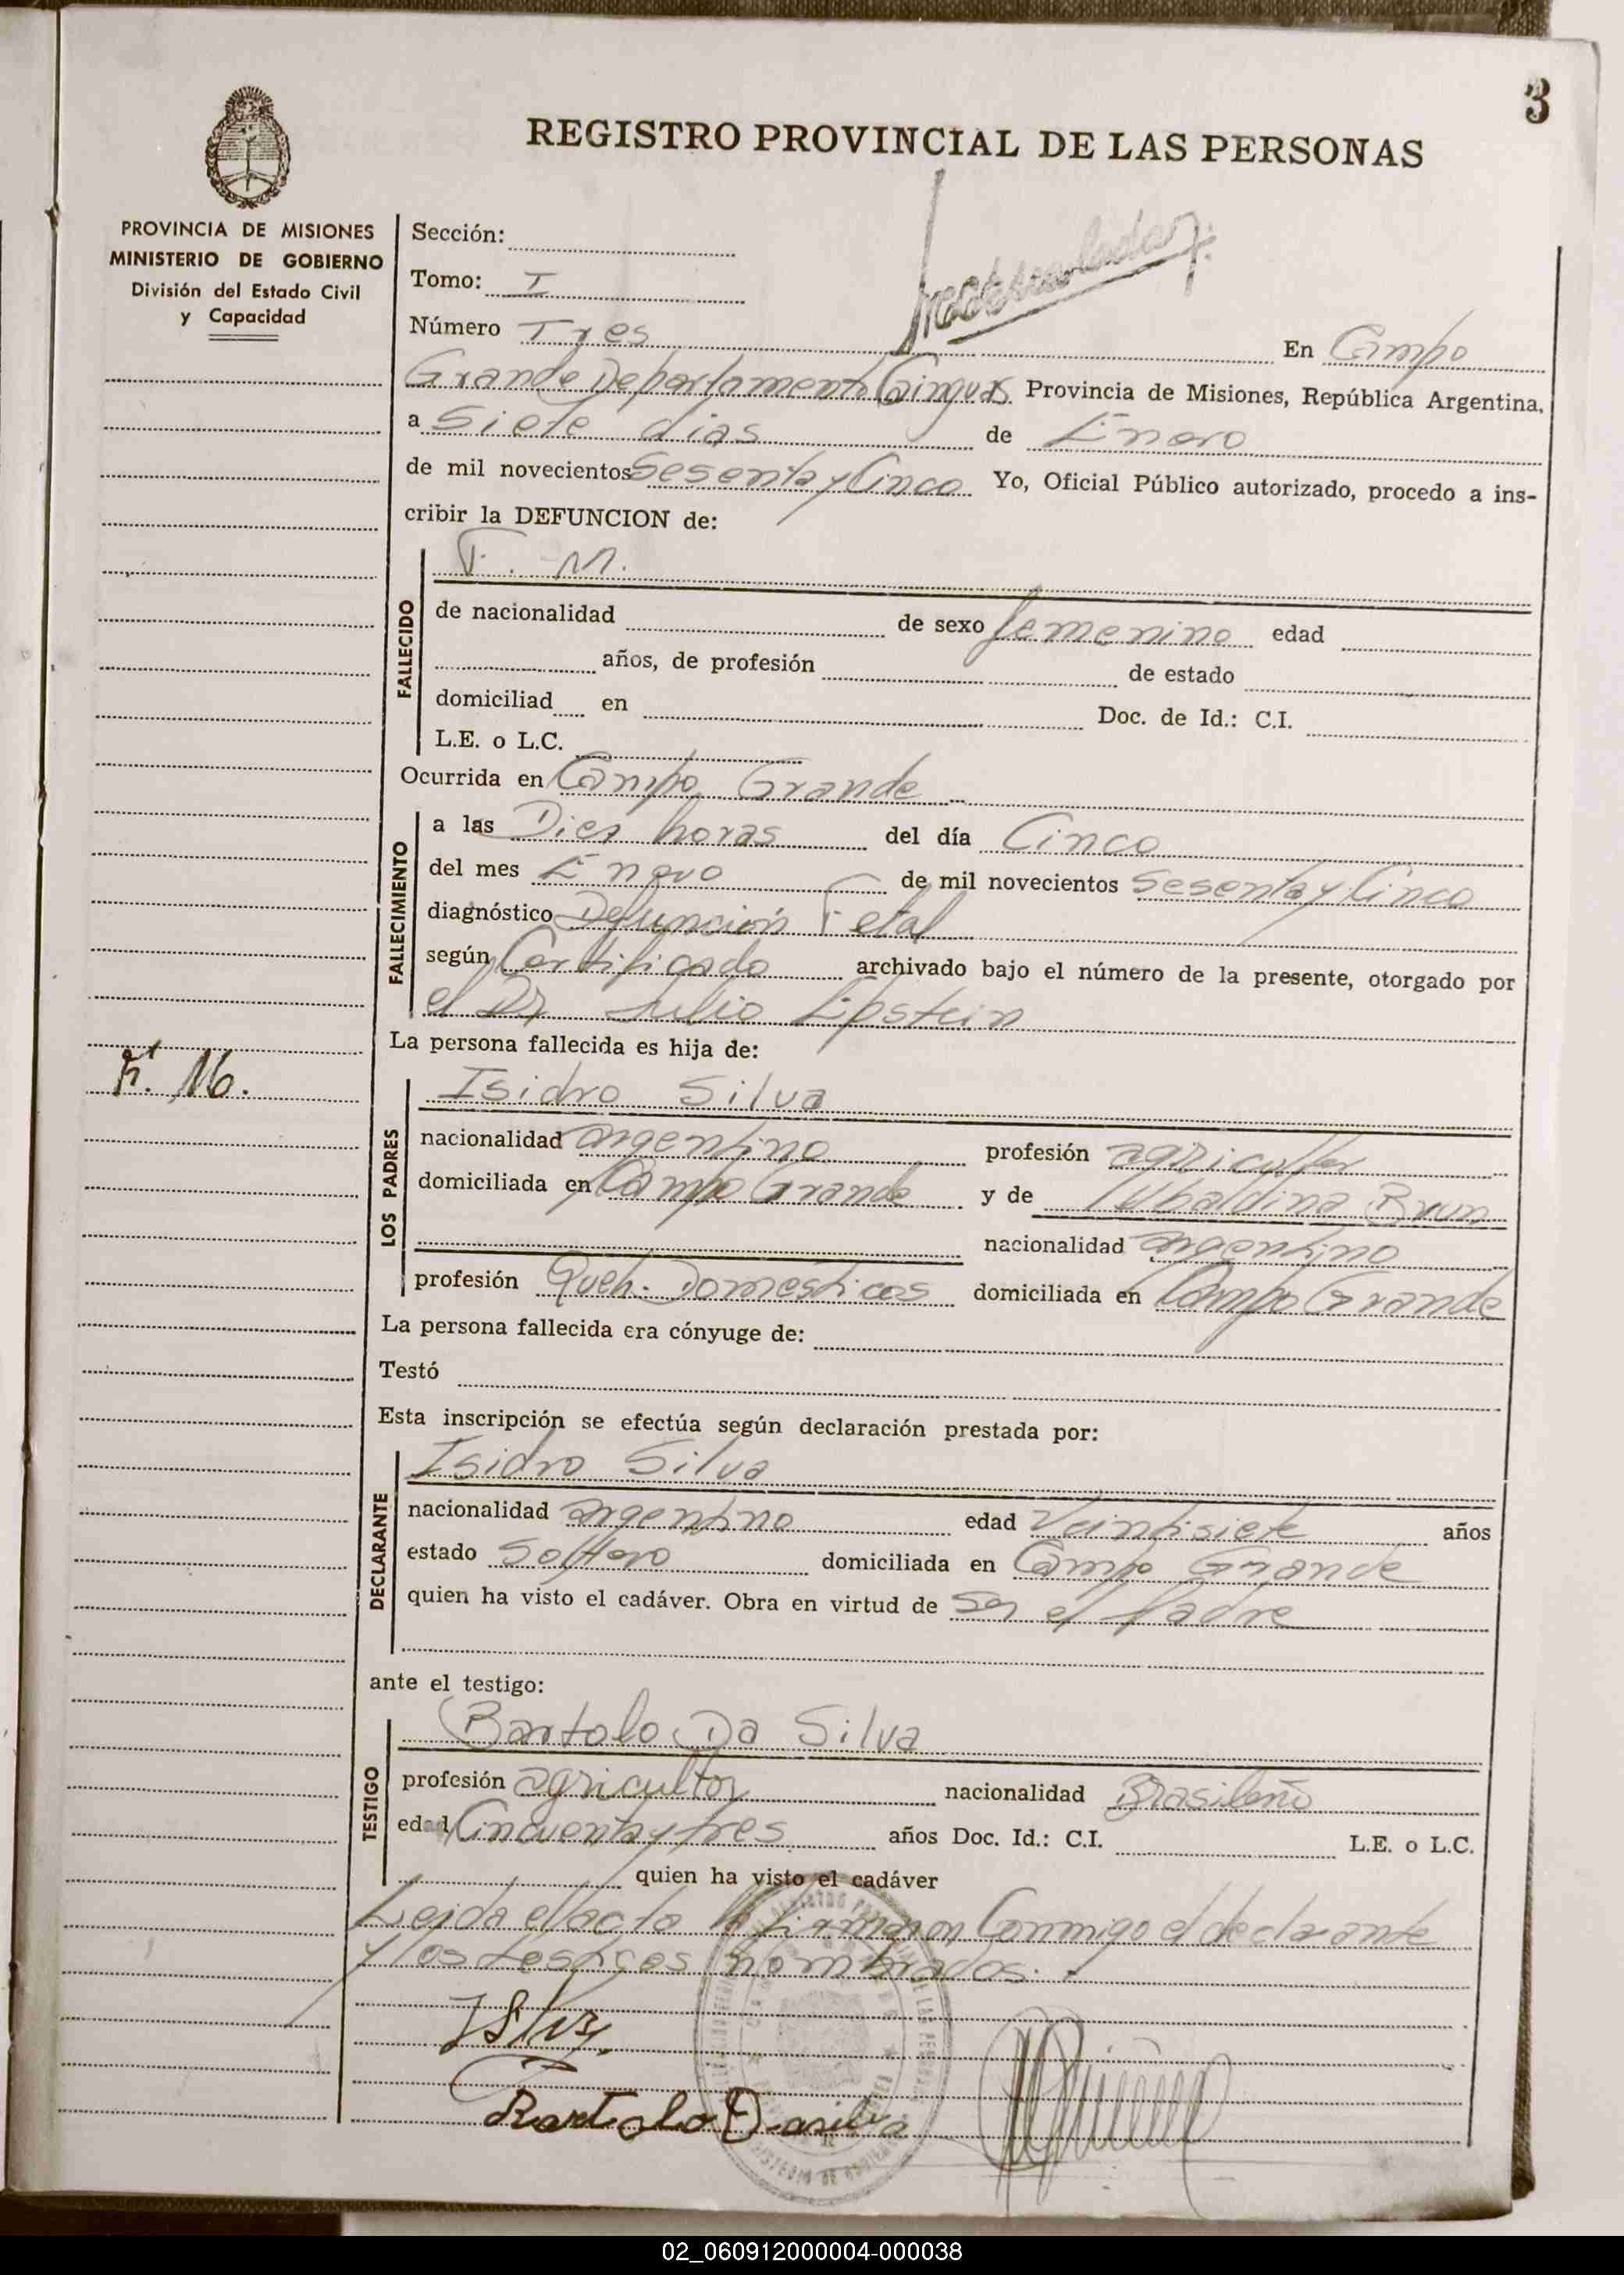 3
REGISTRO PROVINCIAL DE LAS PERSONAS
PROVINCIA DE MISIONES
MINISTERIO DE GOBIERNO
División del Estado Civil
y Capacidad
Sección:
Tomo: I
Número Tres En Campo
Grande Departamento Cainguas Provincia de Misiones, República Argentina,
a Siete dias de Enero
de mil novecientos Sesenta y Cinco Yo, Oficial Público autorizado, procedo a ins-
cribir la DEFUNCION de:
F. M.
FALLECIDO
de nacionalidad de sexo femenino edad
años, de profesión de estado
domiciliad en Doc. de Id.: C.I.
L.E. o L.C.
Ocurrida en Campo Grande
FALLECIMIENTO
a las Diez horas del día Cinco
del mes Enero de mil novecientos Sesenta y Cinco
diagnóstico Defunción Fetal
según Certificado archivado bajo el número de la presente, otorgado por
el Dr Julio Epstein
La persona fallecida es hija de:
F. M.
LOS PADRES
Isidro Silva
nacionalidad argentino profesión agricultor
domiciliada en Campo Grande y de Ubaldina Brun
nacionalidad argentino
profesión Queh. Domesticos domiciliada en Campo Grande
La persona fallecida era cónyuge de:
Testó
Esta inscripción se efectúa según declaración prestada por:
DECLARANTE
Isidro Silva
nacionalidad argentino edad Veintisiete años
estado Soltero domiciliada en Campo Grande
quien ha visto el cadáver. Obra en virtud de Ser el Padre
ante el testigo:
TESTIGO
Bartolo Da Silva
profesión agricultor nacionalidad Brasileño
edad Cincuenta y tres años Doc. Id.: C.I. L.E. o L.C.
quien ha visto el cadáver
Leida el acta la firmaron Conmigo el declarante
y los testigos nombrados.
Bartolo Dasilva
02_060912000004-000038